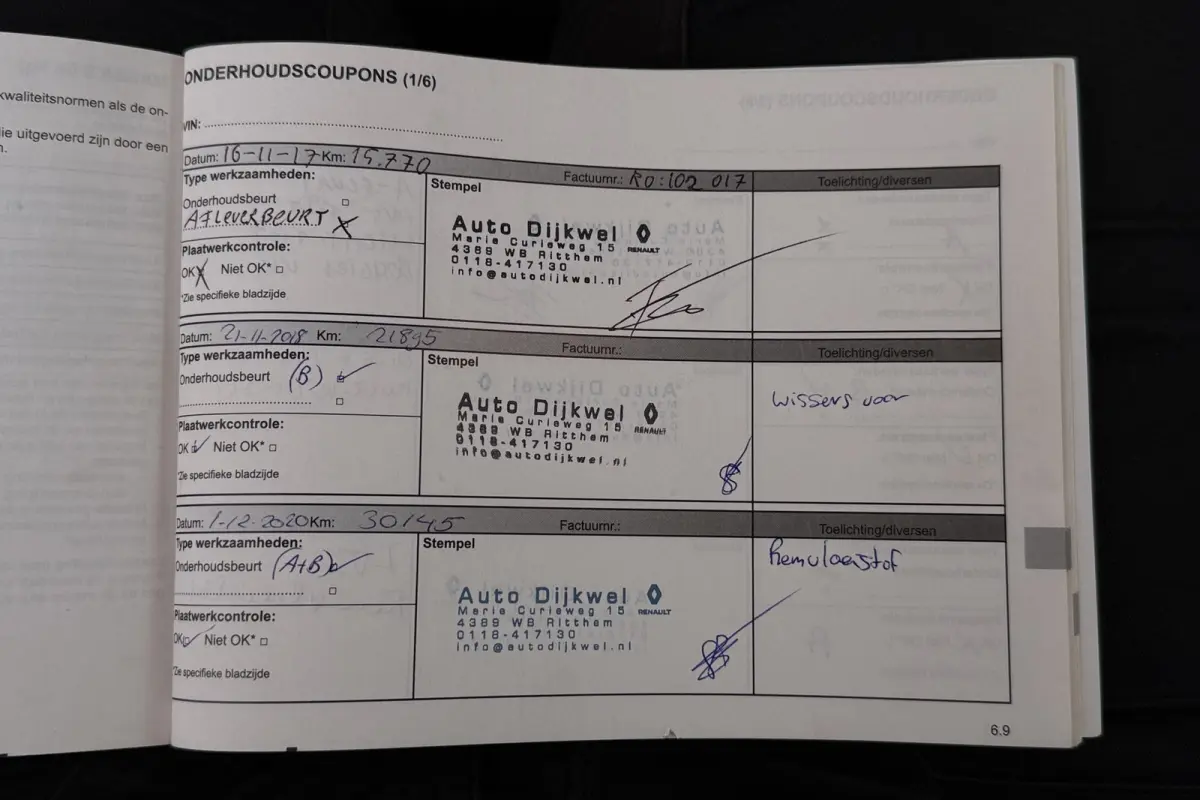 kwaliteitsnormen als de on-
ie uitgevoerd zijn door een
n.
ONDERHOUDSCOUPONS (1/6)
VIN:
Datum: 16-11-17 Km: 15.770 Factuurnr.: RO:102 017 Toelichting/diversen
Type werkzaamheden:
Stempel
Onderhoudsbeurt
AFLEVERBEURT X
Plaatwerkcontrole:
OK X Niet OK*
*Zie specifieke bladzijde
Auto Dijkwel
RENAULT
Marie Curieweg 15
4389 WB Ritthem
0118-417130
info@autodijkwel.nl
Datum: 21-11-2018 Km: 21895 Factuurnr.: Toelichting/diversen
Type werkzaamheden:
Stempel
Onderhoudsbeurt (B)
Plaatwerkcontrole:
OK Niet OK*
*Zie specifieke bladzijde
Auto Dijkwel
Marie Curieweg 15
RENAULT
4389 WB Ritthem
0118-417130
info@autodijkwel.nl
wissers voor
Datum: 1-12-2020 Km: 30145 Factuurnr.: Toelichting/diversen
Type werkzaamheden:
Stempel
Onderhoudsbeurt (A+B)
Plaatwerkcontrole:
OK Niet OK*
*Zie specifieke bladzijde
Auto Dijkwel
Marie Curieweg 15
RENAULT
4389 WB Ritthem
0118-417130
info@autodijkwel.nl
Remvloeistof
6.9